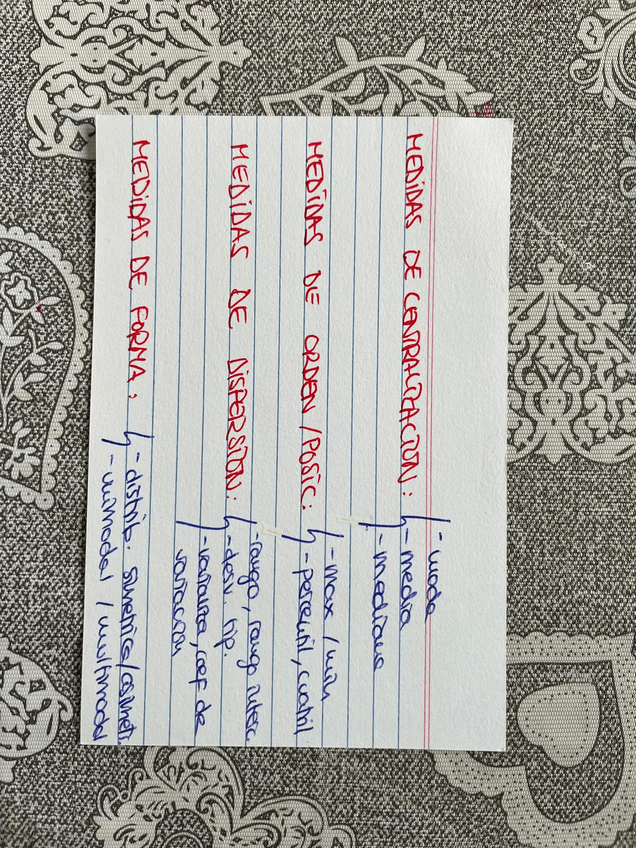 - moda
MEDIDAS DE CENTRALIZACIÓN: - media
- mediana
- max / min
MEDIDAS DE ORDEN / POSIC: - percentil, cuatril
- rango, rango interc.
MEDIDAS DE DISPERSIÓN: - desv. tip.
- varianza, coef de
variación
MEDIDAS DE FORMA: - distrib. simetrica/asimetr.
- unimodal / multimodal